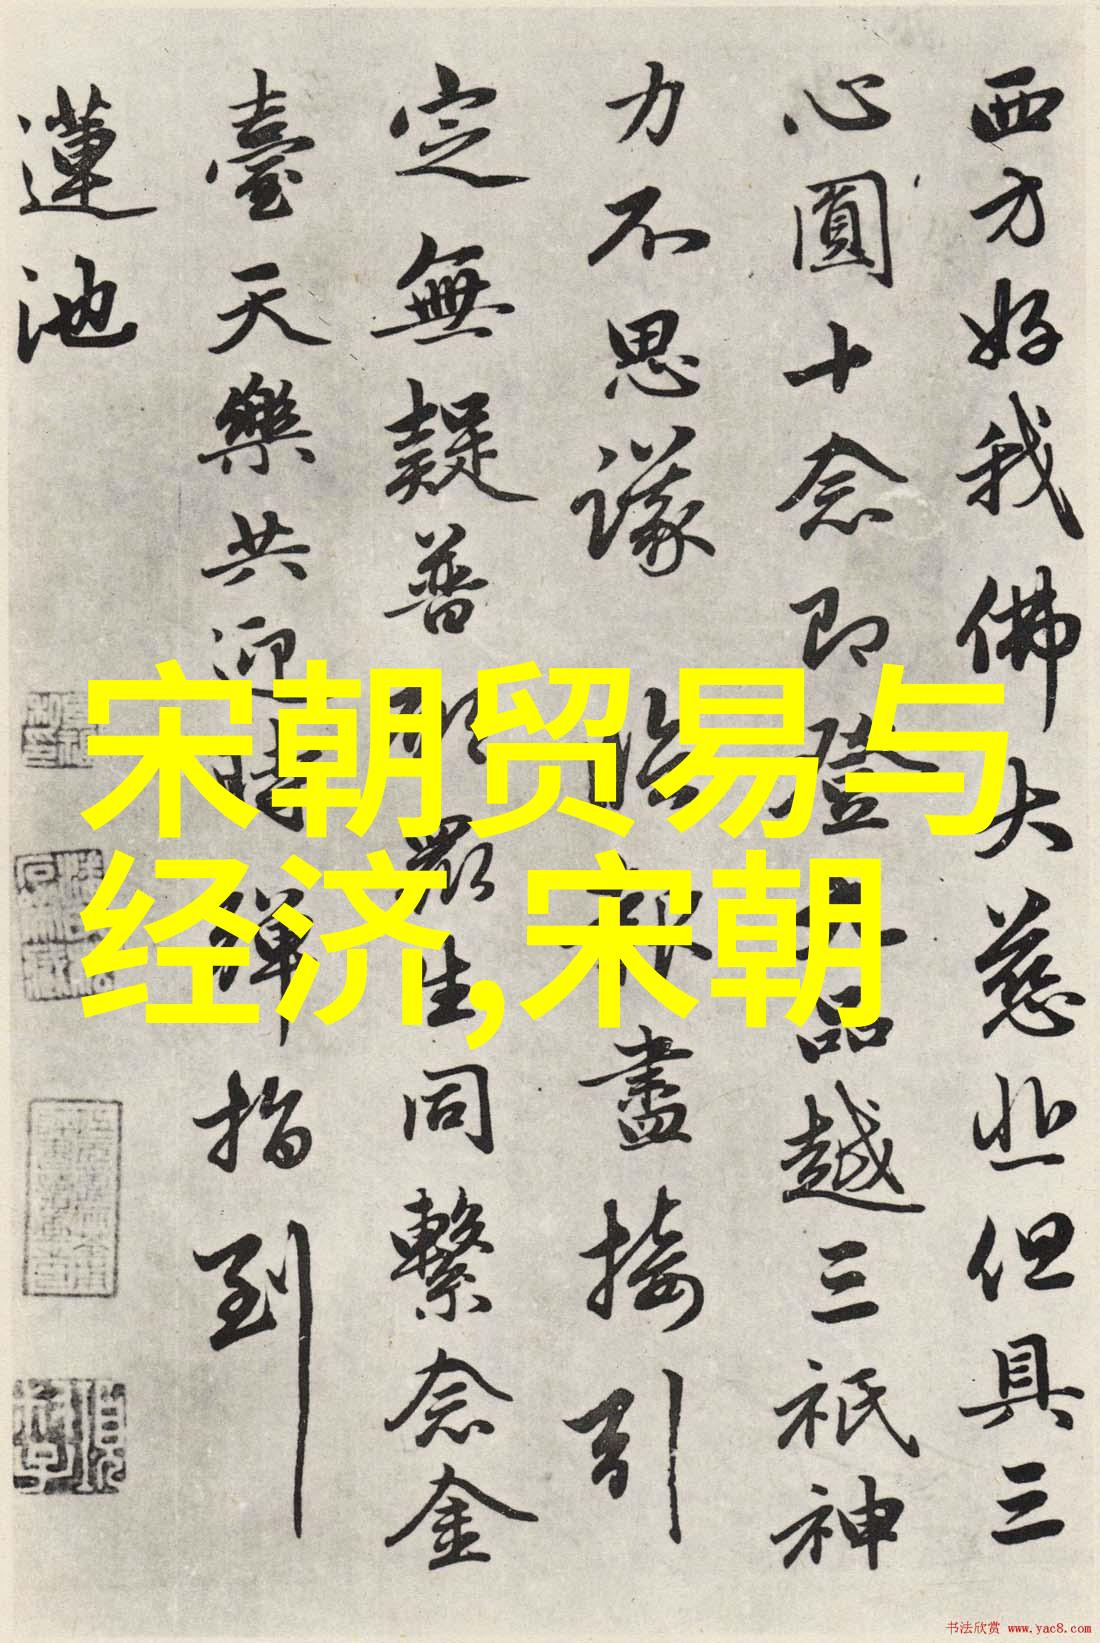 西方好我佛大慈悲但具三
心圓十念即證九品越三祇神
力不思議 臨報盡接引
定無疑普願眾生同繫念金
臺天樂共迎時彈指到
蓮池
宋朝贸易与
经济,宋朝
书法欣赏 www.yac8.com